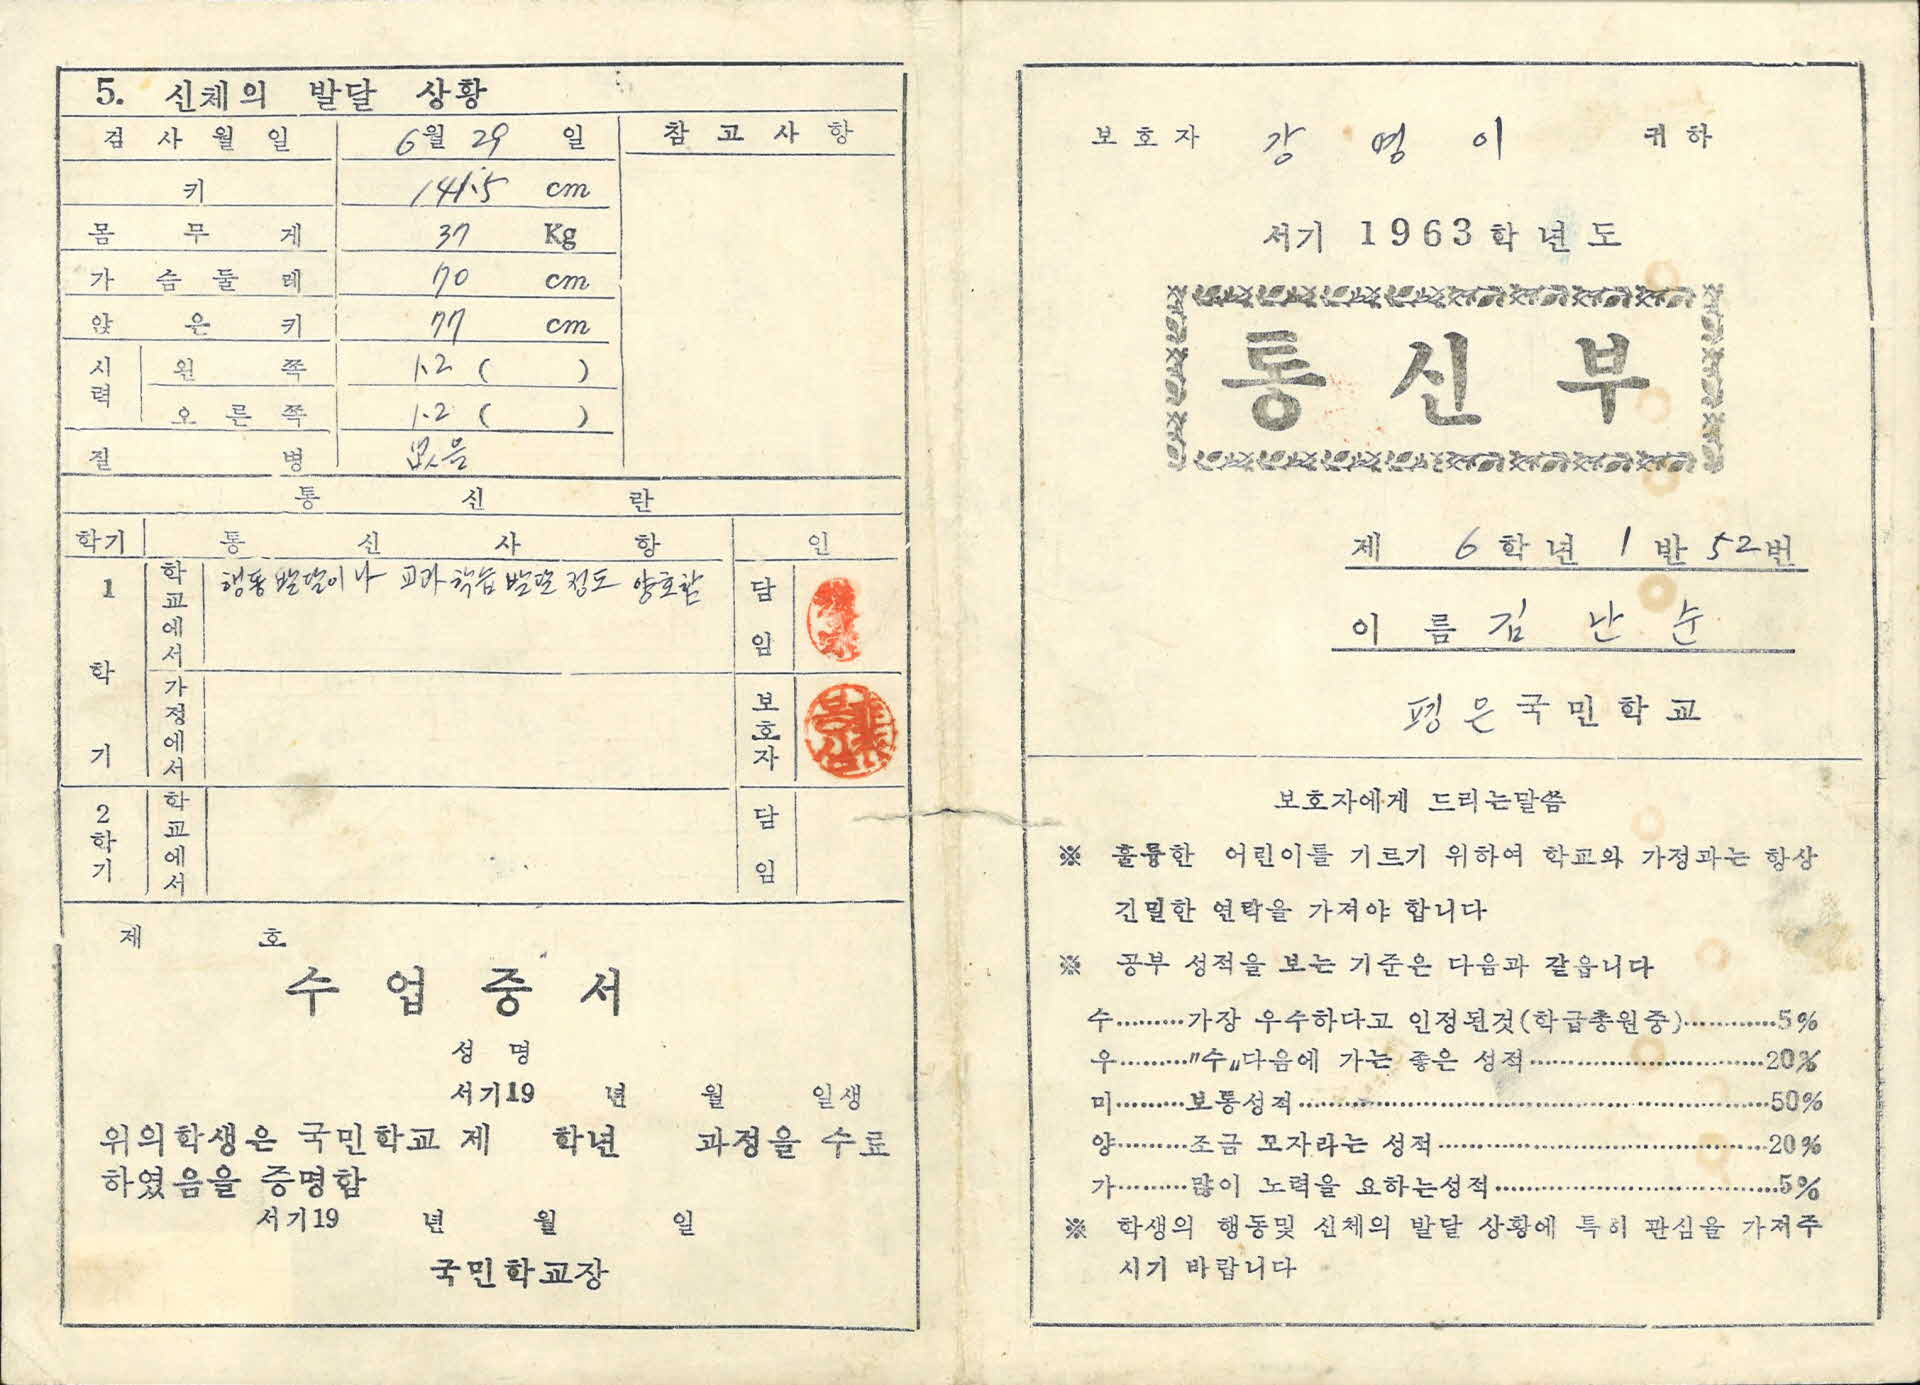 5. 신체의 발달 상황
검사월일 6월 29일 참고사항
키 141.5 cm
몸무게 37 Kg
가슴둘레 70 cm
앉은키 77 cm
시력 왼쪽 1.2 ( )
오른쪽 1.2 ( )
질병 없음
통신란
학기 통신사항 인
1학기 학교에서 행동발달이나 교과학습발달정도 양호함 담임
가정에서 보호자
2학기 학교에서 담임
제 호
수업증서
성명
서기19 년 월 일생
위의학생은 국민학교 제 학년 과정을 수료
하였음을 증명함
서기19 년 월 일
국민학교장
보호자 강명이 귀하
서기 1963학년도
통신부
제 6학년 1반 52번
이름 김난순
평은국민학교
보호자에게 드리는말씀
※ 훌륭한 어린이를 기르기 위하여 학교와 가정과는 항상
긴밀한 연락을 가져야 합니다
※ 공부 성적을 보는 기준은 다음과 같읍니다
수………가장 우수하다고 인정된것(학급총원중)…………5%
우………〃수〃다음에 가는 좋은 성적…………………………20%
미………보통성적……………………………………………………50%
양………조금 모자라는 성적……………………………………20%
가………많이 노력을 요하는성적………………………………5%
※ 학생의 행동및 신체의 발달 상황에 특히 관심을 가져주
시기 바랍니다